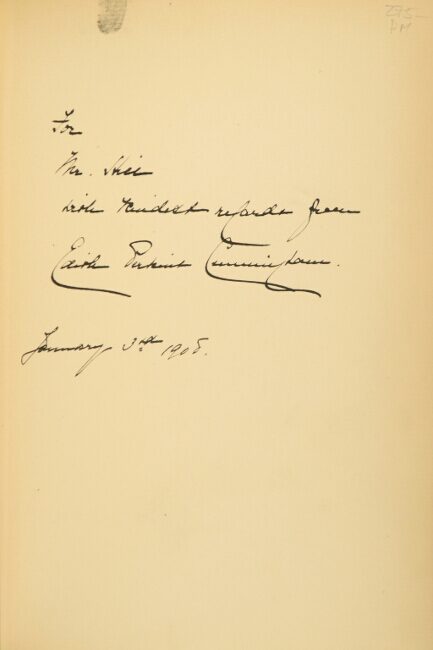 For
Mr. Hill
with kindest regards from
Edith Perkins Cunningham.
January 3rd 190